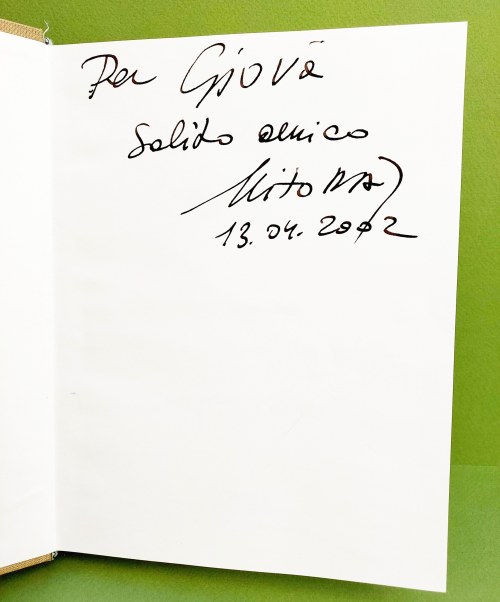 Per Giovã
Solido amico
Mitoraj
13.04.2002